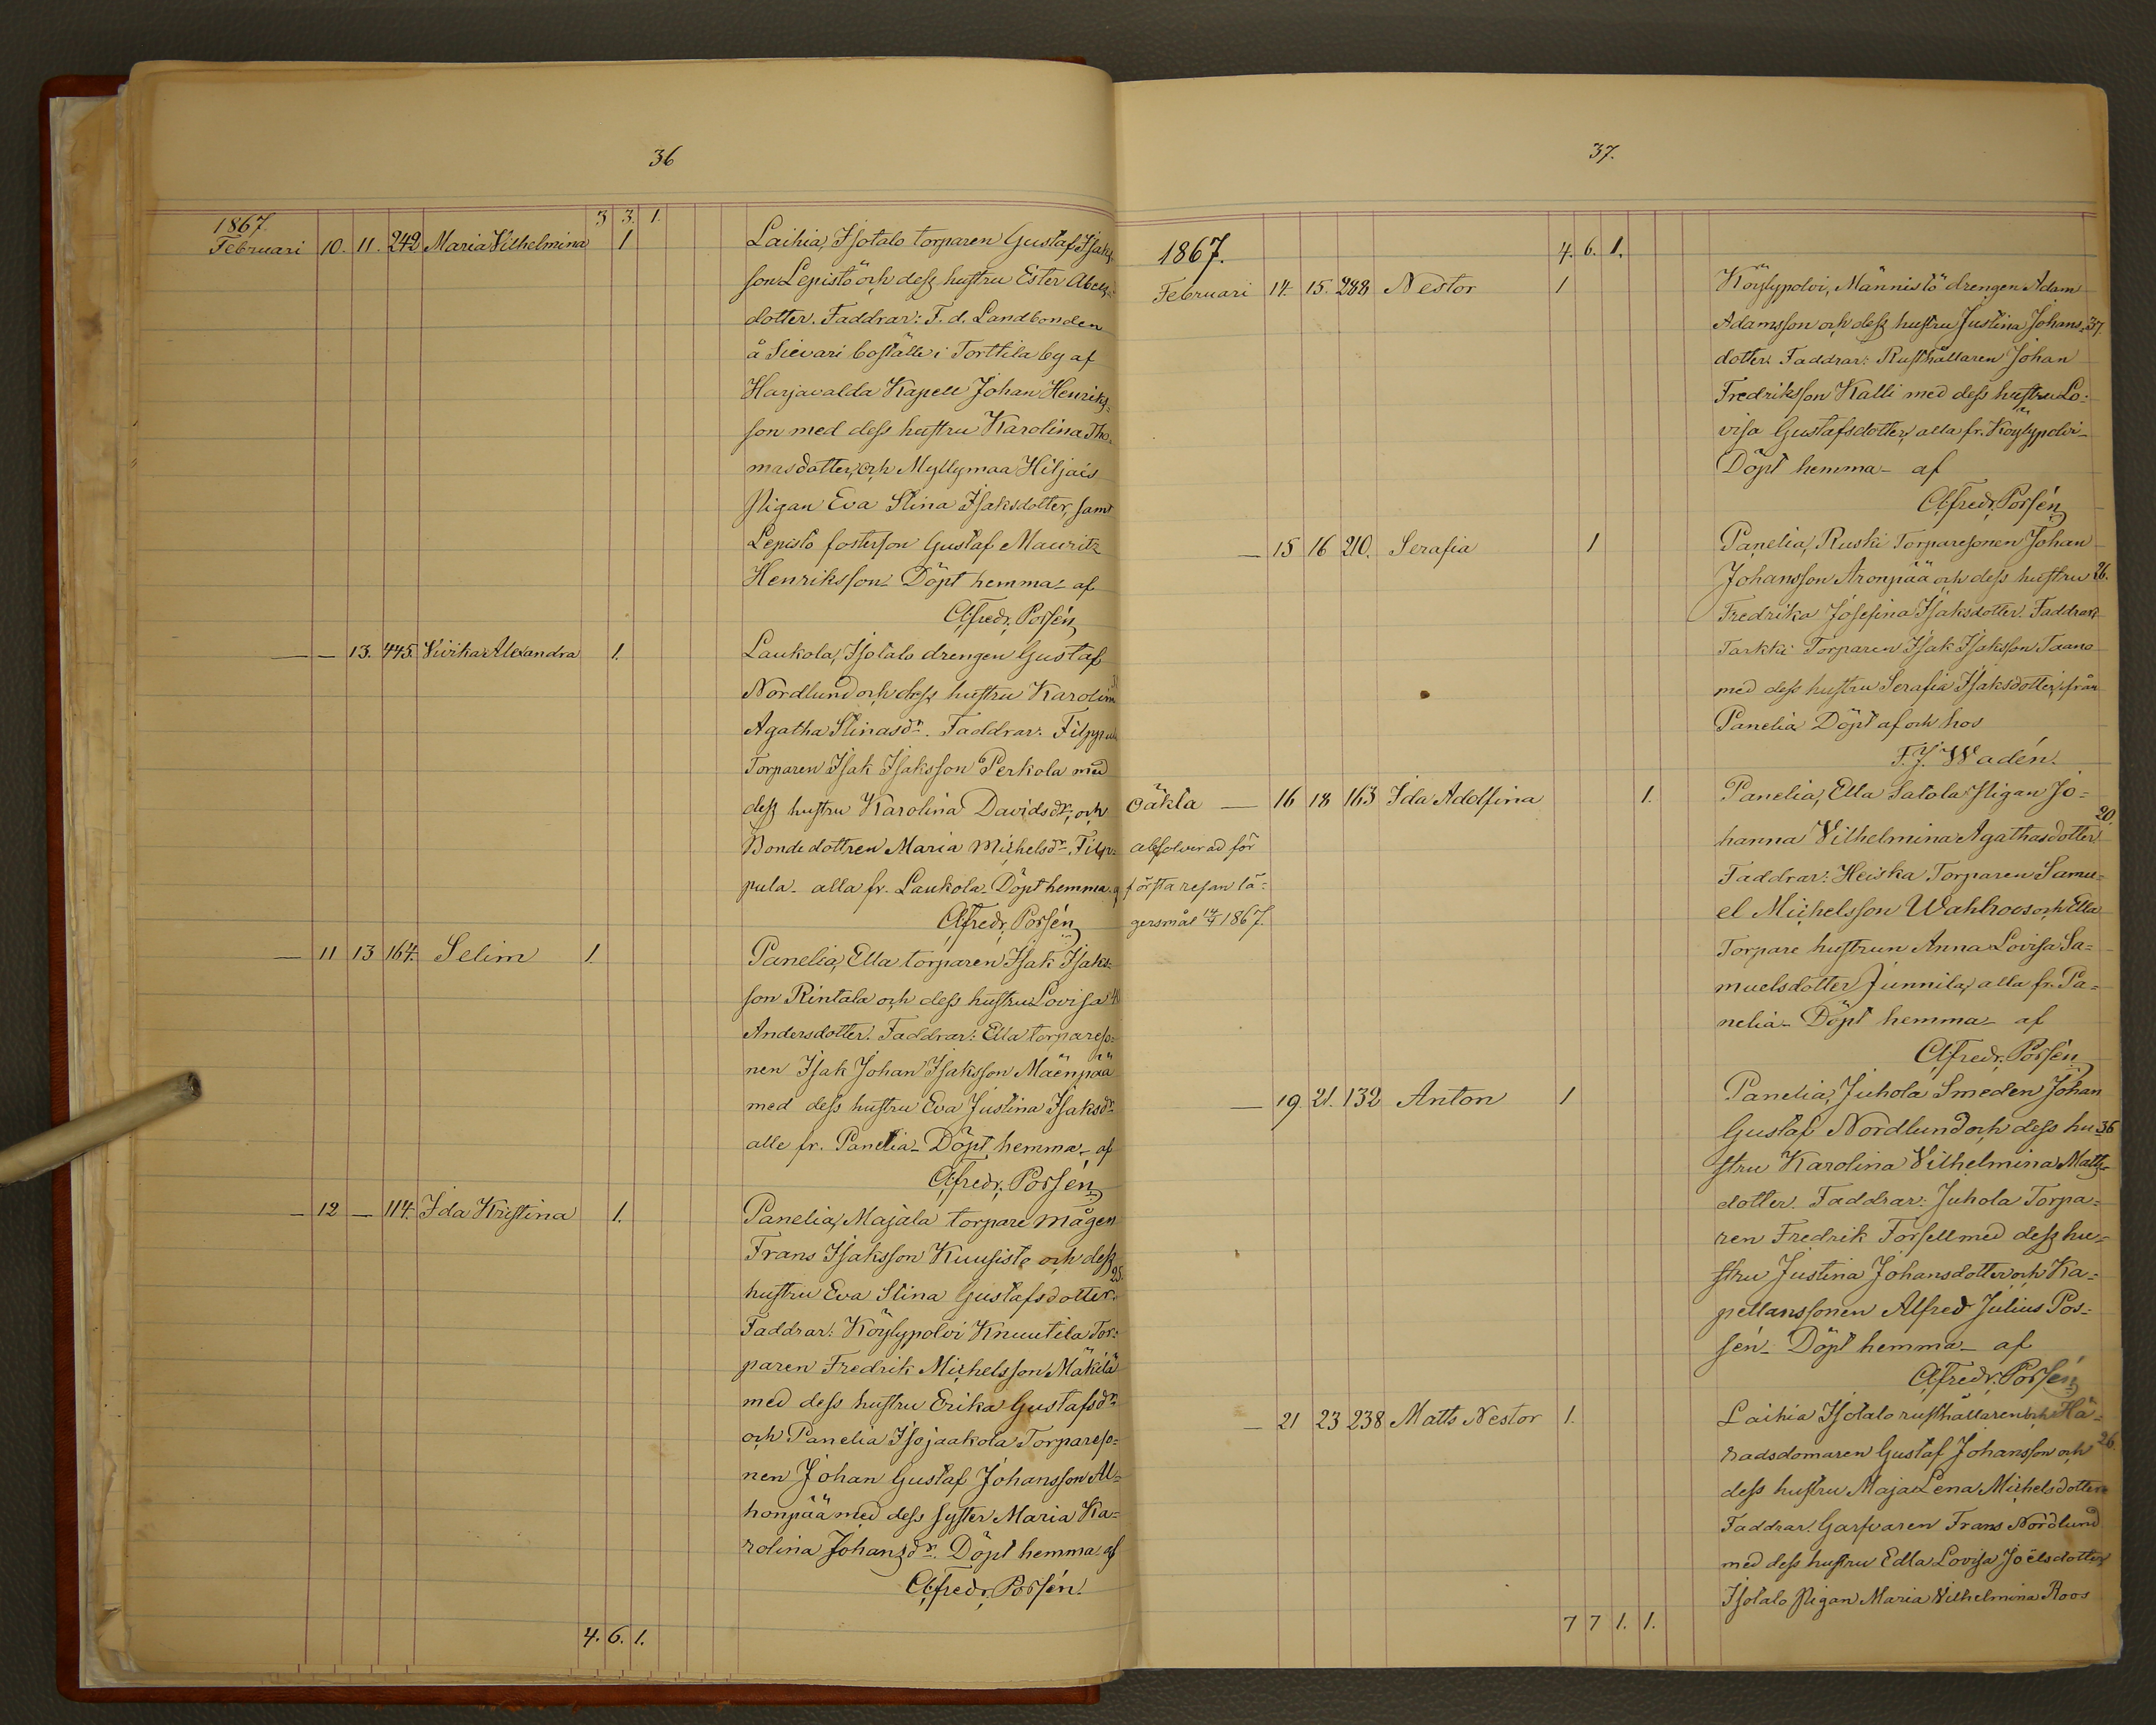 36
1867. 3 3. 1.
Februari 10. 11. 242 Maria Vilhelmina 1 Laihia, Isotalo torparen Gustaf Isaks-
son Lepistö och dess hustru Ester Abels-
dotter. Faddrar: F. d. Landbonden
å Sievari boställe i Torttila by af
Harjavalda Kapell Johan Henriks-
son med dess hustru Karolina Tho-
masdotter, och Myllymaa Hiljais
pigan Eva Stina Isaksdotter, samt
Lepistö fosterson Gustaf Mauritz
Henriksson. Döpt hemma af
Alfredr. Possén
— — 13. 445. Vivika Alexandra 1. Laukola, Isotalo drengen Gustaf
Nordlund och dess hustru Karolina
Agatha Stinasdr. Faddrar: Filppula
Torparen Isak Isaksson Perkola med
dess hustru Karolina Davidsdr, och
Bondedottren Maria Michelsdr. Filp-
pula – alla fr. Laukola. Döpt hemma af
Alfredr. Possén
— 11 13 164. Selim 1. Panelia, Ella torparen Isak Isaks-
son Rintala och dess hustru Lovisa 40
Andersdotter. Faddrar: Ella torpareso-
nen Isak Johan Isaksson Mäenpää
med dess hustru Eva Justina Isaksdr
alle fr. Panelia – Döpt hemma – af
Alfredr. Possén
— 12 — 114. Ida Kristina 1. Panelia, Majala torpare mågen
Frans Isaksson Kuusisto och dess 25.
hustru Eva Stina Gustafsdotter.
Faddrar: Köylypolvi Knuutila Tor-
paren Fredrik Michelsson Mäkilä
med dess hustru Erika Gustafsdr
och Panelia Isojaakola Torpareso-
nen Johan Gustaf Johansson Al-
honpää med dess syster Maria Ka-
rolina Johansdr. Döpt hemma af
Alfredr. Possén.
4. 6. 1.
37.
1867. 4. 6. 1.
Februari 14. 15. 288 Nestor 1 Köylypolvi, Männistö drengen Adam
Adamsson och dess hustru Justina Johans- 37.
dotter. Faddrar: Rusthållaren Johan
Fredriksson Kalli med dess hustru Lo-
visa Gustafsdotter, alla fr. Köylypolvi –
Döpt hemma – af
Alfredr. Possén
— 15 16 210. Serafia 1 Panelia, Ruski Torparesonen Johan
Johansson Aronpää och dess hustru 26.
Fredrika Josefina Isaksdotter. Faddrar:
Tarkki Torparen Isak Isaksson Taano
med dess hustru Serafia Isaksdotter, från
Panelia Döpt af och hos
F. J. Wadén.
Oäkta — 16 18 163 Ida Adolfina 1. Panelia, Ella Satola Pigan Jo-
absolverad för
första resan lä-
gersmål 14/4 1867.
hanna Vilhelmina Agathasdotter 20.
Faddrar: Heiska Torparen Samu-
el Michelsson Wahlroos och Ella
Torpare hustrun Anna Lovisa Sa-
muelsdotter Junnila, alla fr. Pa-
nelia – Döpt hemma – af
Alfredr. Possén
— 19. 21. 132 Anton 1 Panelia, Juhola Smeden Johan
Gustaf Nordlund och dess hu- 36
stru Karolina Vilhelmina Matts-
dotter. Faddrar: Juhola Torpa-
ren Fredrik Forsell med dess hu-
stru Justina Johansdotter och Ka-
pellanssonen Alfred Julius Pos-
sén – Döpt hemma – af
Alfredr. Possén
— 21 23 238 Matts Nestor 1. Laihia Isotalo rusthållaren och Hä-
radsdomaren Gustaf Johansson och 26.
dess hustru Maja Lena Michelsdotter
Faddrar: Garfvaren Frans Nordlund
med dess hustru Edla Lovisa Joelsdotter
Isotalo Pigan Maria Vilhelmina Roos
7 7 1. 1.